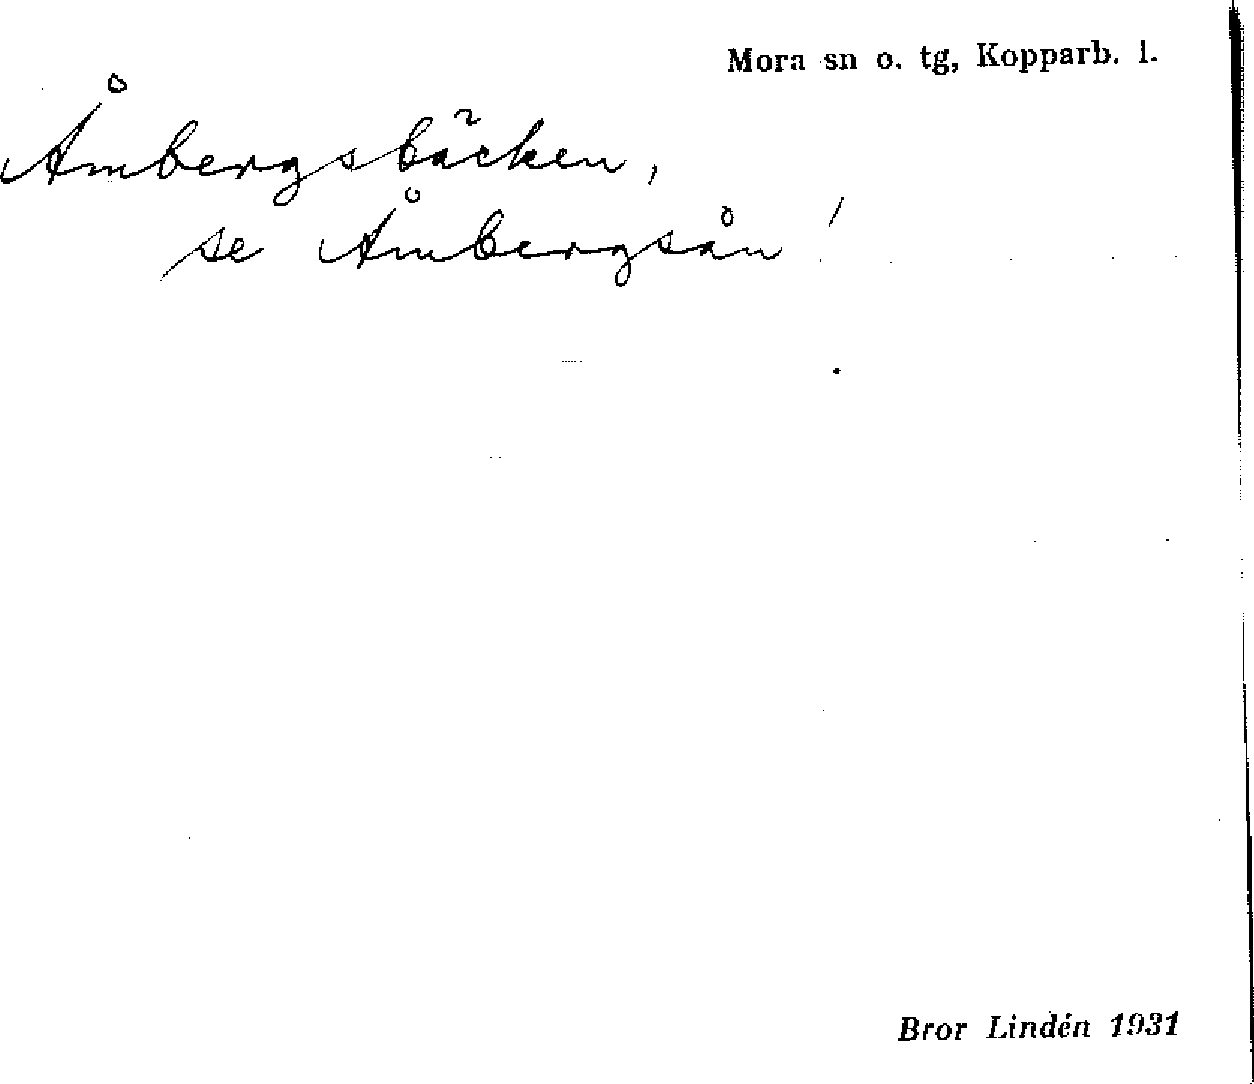 Mora sn o. tg, Kopparb. l.
Åmbergsbäcken,
se Åmbergsån!
Bror Lindén 1931